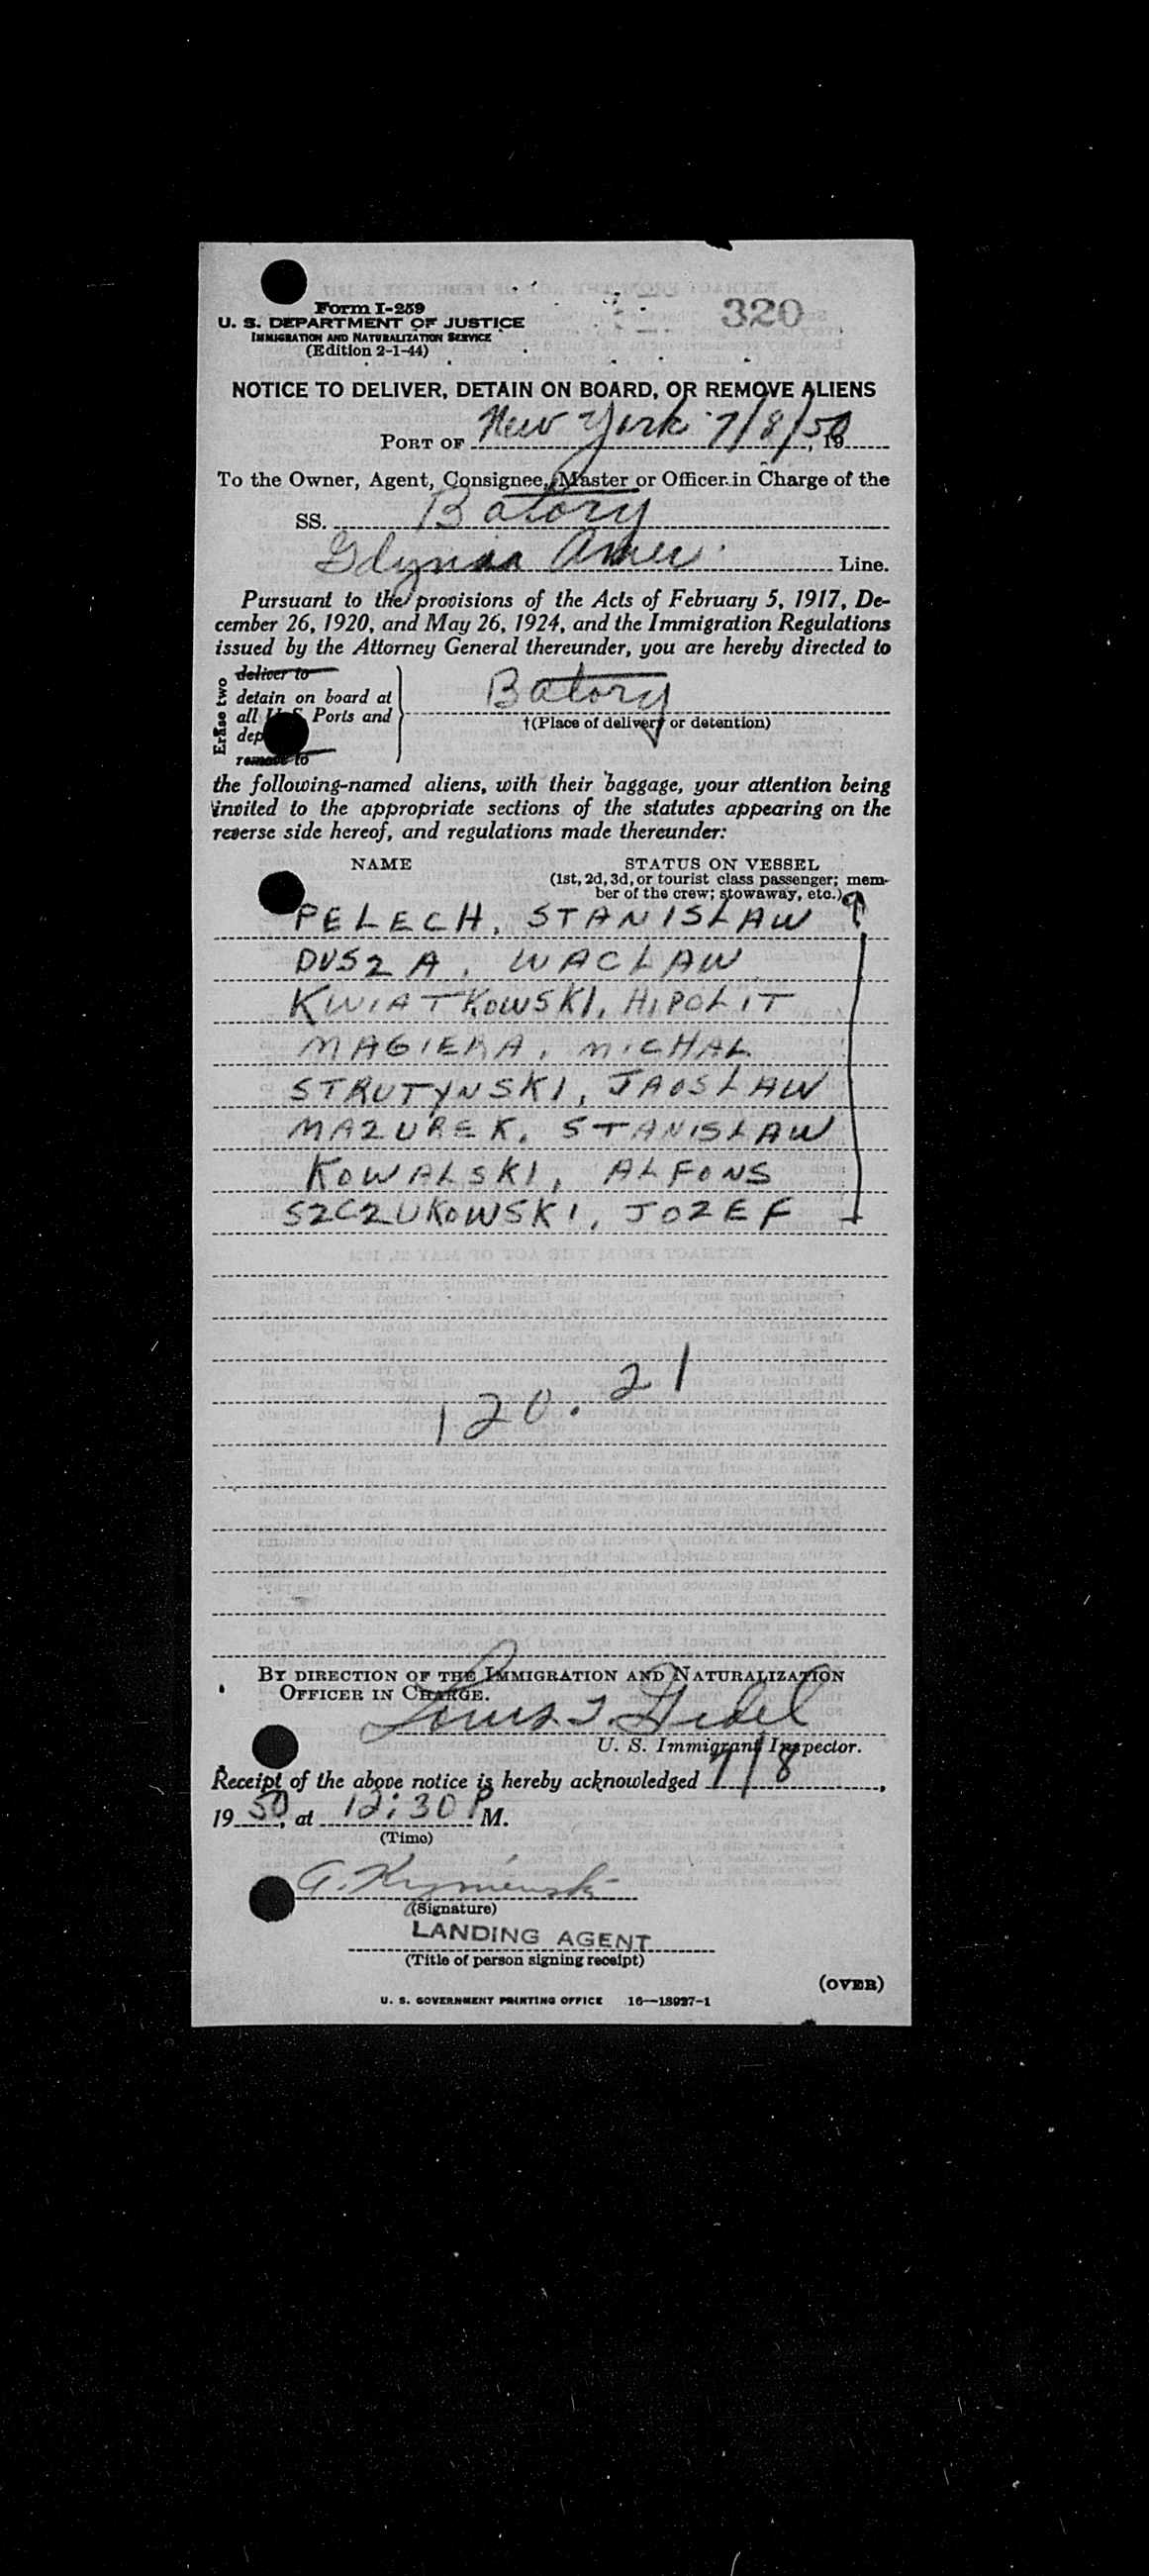 Form I-259
320
U. S. DEPARTMENT OF JUSTICE
IMMIGRATION AND NATURALIZATION SERVICE
(Edition 2-1-44)
NOTICE TO DELIVER, DETAIN ON BOARD, OR REMOVE ALIENS
PORT OF New York 7/8/50, 19
To the Owner, Agent, Consignee, Master or Officer in Charge of the
SS. Batory
Gdynia Amer. Line.
Pursuant to the provisions of the Acts of February 5, 1917, De-
cember 26, 1920, and May 26, 1924, and the Immigration Regulations
issued by the Attorney General thereunder, you are hereby directed to
Erase two
deliver to
detain on board at
all U. S. Ports and
dep
remove to
Batory
†(Place of delivery or detention)
the following-named aliens, with their baggage, your attention being
invited to the appropriate sections of the statutes appearing on the
reverse side hereof, and regulations made thereunder:
NAME STATUS ON VESSEL
(1st, 2d, 3d, or tourist class passenger; mem-
ber of the crew; stowaway, etc.)
PELECH, STANISLAW
DUSZA, WACLAW
KWIATKOWSKI, HIPOLIT
MAGIERA, MICHAL
STRUTYNSKI, JAOSLAW
MAZUREK, STANISLAW
KOWALSKI, ALFONS
SZCZUKOWSKI, JOZEF
120.21
BY DIRECTION OF THE IMMIGRATION AND NATURALIZATION
OFFICER IN CHARGE.
Louis
U. S. Immigrant Inspector.
Receipt of the above notice is hereby acknowledged 7/8,
1950, at 12:30 P M.
(Time)
(Signature)
LANDING AGENT
(Title of person signing receipt)
(OVER)
U. S. GOVERNMENT PRINTING OFFICE 16—18927-1